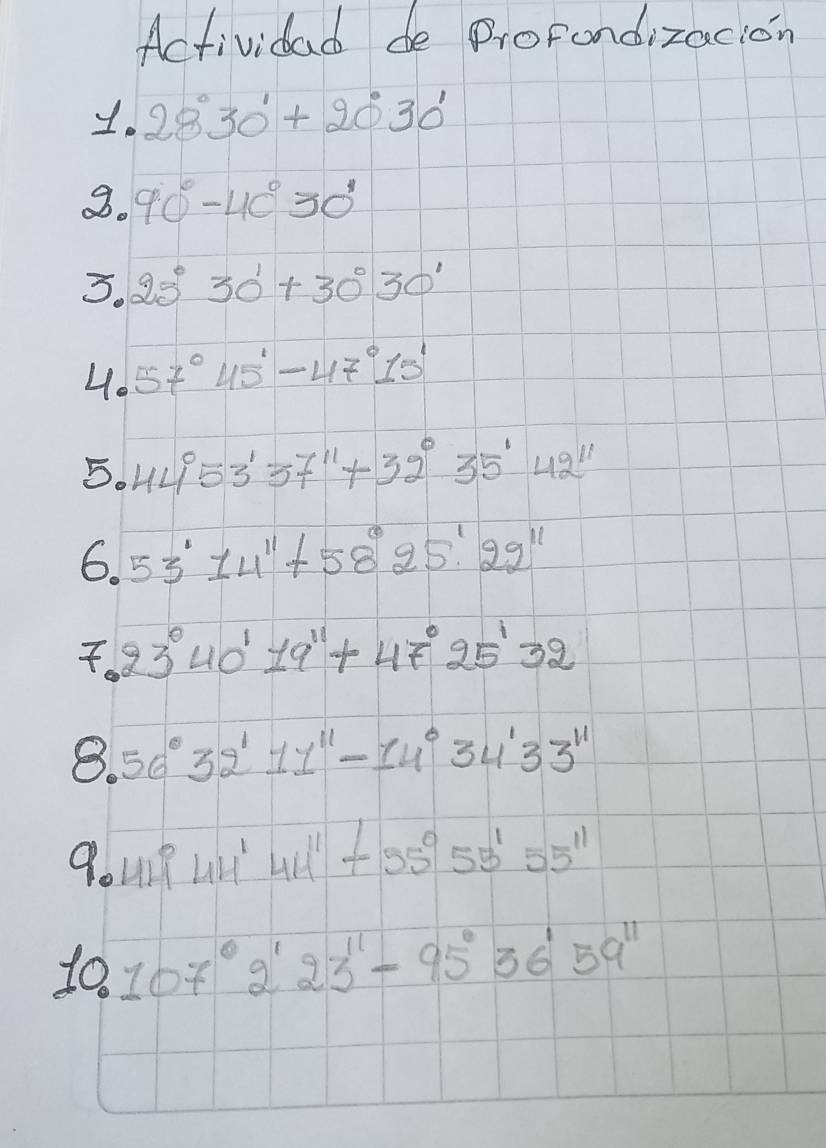 Actividad de Profondización
1. 28°30' + 20°30'
2. 90° - 40° 30'
3. 25° 30' + 30° 30'
4. 57° 45' - 47° 15'
5. 44° 53' 37" + 32° 35' 42"
6. 53' 14" + 58° 25' 22"
7. 23° 40' 19" + 47° 25' 32
8. 56° 32' 11" - 14° 34' 33"
9. 44° 44' 44" + 55° 55' 55"
10. 107° 2' 23" - 95° 36' 59"